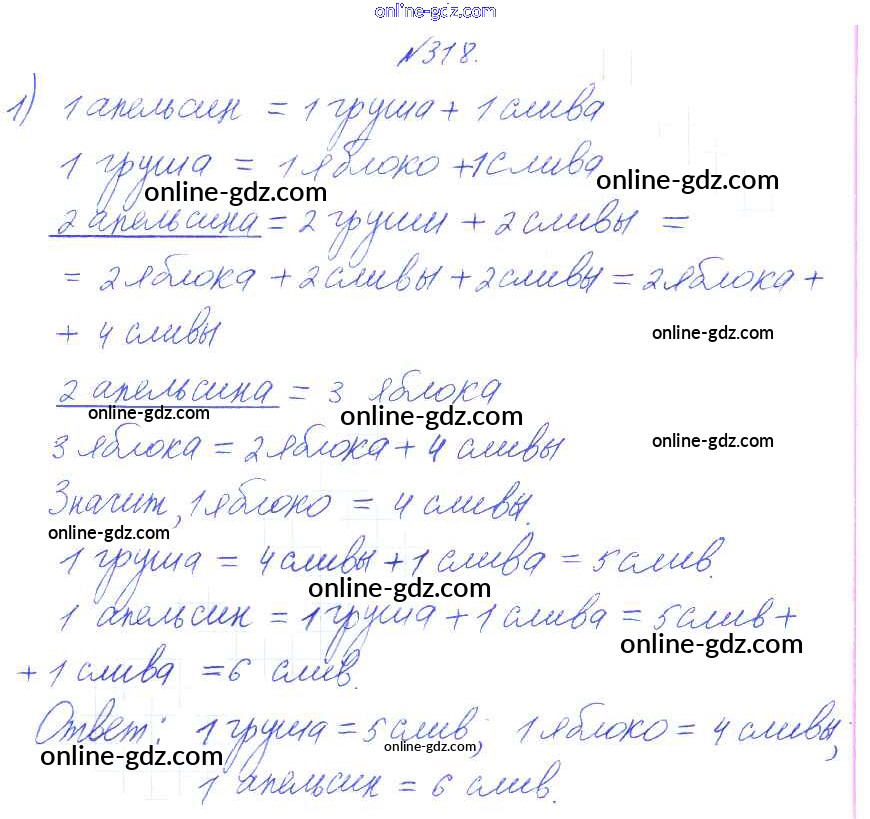 online-gdz.com
№318.
1) 1 апельсин = 1 груша + 1 слива
1 груша = 1 яблоко + 1 слива
online-gdz.com
online-gdz.com
2 апельсина = 2 груши + 2 сливы =
= 2 яблока + 2 сливы + 2 сливы = 2 яблока +
+ 4 сливы
online-gdz.com
2 апельсина = 3 яблока
online-gdz.com
online-gdz.com
3 яблока = 2 яблока + 4 сливы
online-gdz.com
Значит, 1 яблоко = 4 сливы.
online-gdz.com
1 груша = 4 сливы + 1 слива = 5 слив.
online-gdz.com
1 апельсин = 1 груша + 1 слива = 5 слив +
online-gdz.com
+ 1 слива = 6 слив.
Ответ: 1 груша = 5 слив; 1 яблоко = 4 сливы,
online-gdz.com
online-gdz.com
1 апельсин = 6 слив.